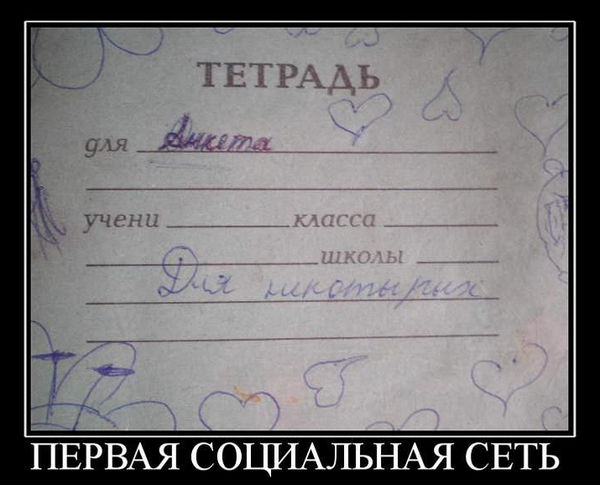 ТЕТРАДЬ
для Анкета
учени класса
школы
Для никотырых
ПЕРВАЯ СОЦИАЛЬНАЯ СЕТЬ